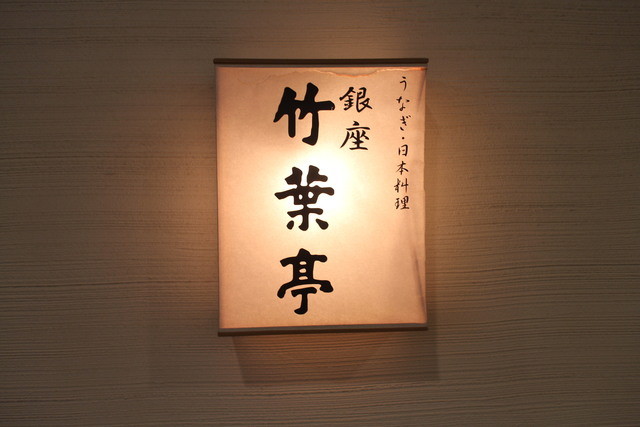 うなぎ・日本料理
銀座
竹葉亭